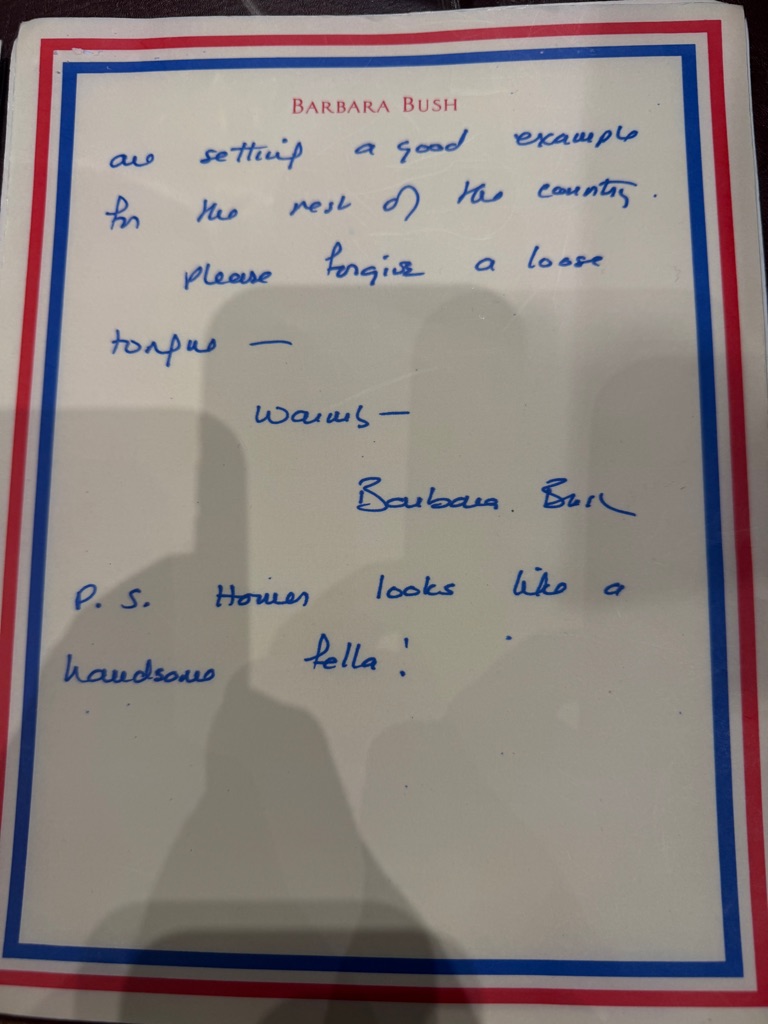 BARBARA BUSH
are setting a good example
for the rest of the country.
please forgive a loose
tongue —
Warmly —
Barbara Bush
P. S. Homer looks like a
handsome fella!